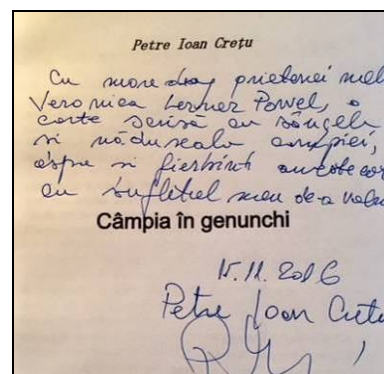 Petre Ioan Crețu
Cu mare drag prietenei mele
Veronica Lerner Pavel, o
carte scrisă cu sângele
și nădușeala câmpiei,
aspre și fierbinți
cu sufletul meu de-a
Câmpia în genunchi
15.11.2016
Petre Ioan Crețu